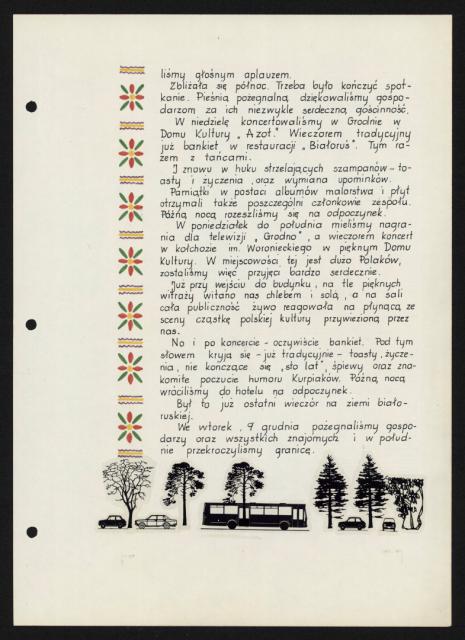 liśmy głośnym aplauzem.
Zbliżała się północ. Trzeba było kończyć spot-
kanie. Pieśnią pożegnalną dziękowaliśmy gospo-
darzom za ich niezwykle serdeczną gościnność.
W niedzielę koncertowaliśmy w Grodnie w
Domu Kultury „Azot." Wieczorem tradycyjny
już bankiet w restauracji „Białoruś". Tym ra-
zem z tańcami.
I znowu w huku strzelających szampanów - to-
asty i życzenia, oraz wymiana upominków.
Pamiątki w postaci albumów malarstwa i płyt
otrzymali także poszczególni członkowie zespołu.
Późną nocą rozeszliśmy się na odpoczynek.
W poniedziałek do południa mieliśmy nagra-
nia dla telewizji „Grodno", a wieczorem koncert
w kołchozie im. Woronieckiego w pięknym Domu
Kultury. W miejscowości tej jest dużo Polaków,
zostaliśmy więc przyjęci bardzo serdecznie.
Już przy wejściu do budynku, na tle pięknych
witraży witano nas chlebem i solą, a na sali
cała publiczność żywo reagowała na płynącą ze
sceny cząstkę polskiej kultury przywiezioną przez
nas.
No i po koncercie - oczywiście bankiet. Pod tym
słowem kryją się - już tradycyjnie - toasty, życze-
nia, nie kończące się „sto lat", śpiewy oraz zna-
komite poczucie humoru Kurpiaków. Późną nocą
wróciliśmy do hotelu na odpoczynek.
Był to już ostatni wieczór na ziemi biało-
ruskiej.
We wtorek, 9 grudnia pożegnaliśmy gospo-
darzy oraz wszystkich znajomych i w połud-
nie przekroczyliśmy granicę.